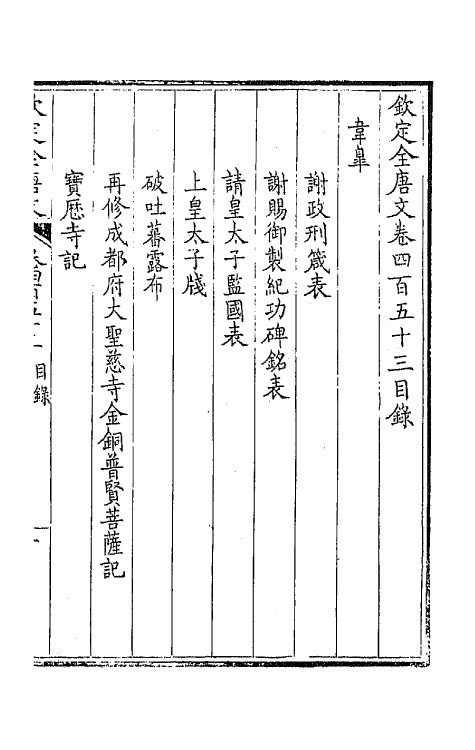 欽定全唐文卷四百五十三目錄
韋臯
謝政刑箴表
謝賜御製紀功碑銘表
請皇太子監國表
上皇太子牋
破吐蕃露布
再修成都府大聖慈寺金銅普賢菩薩記
寶歷寺記
欽定全唐文 目錄